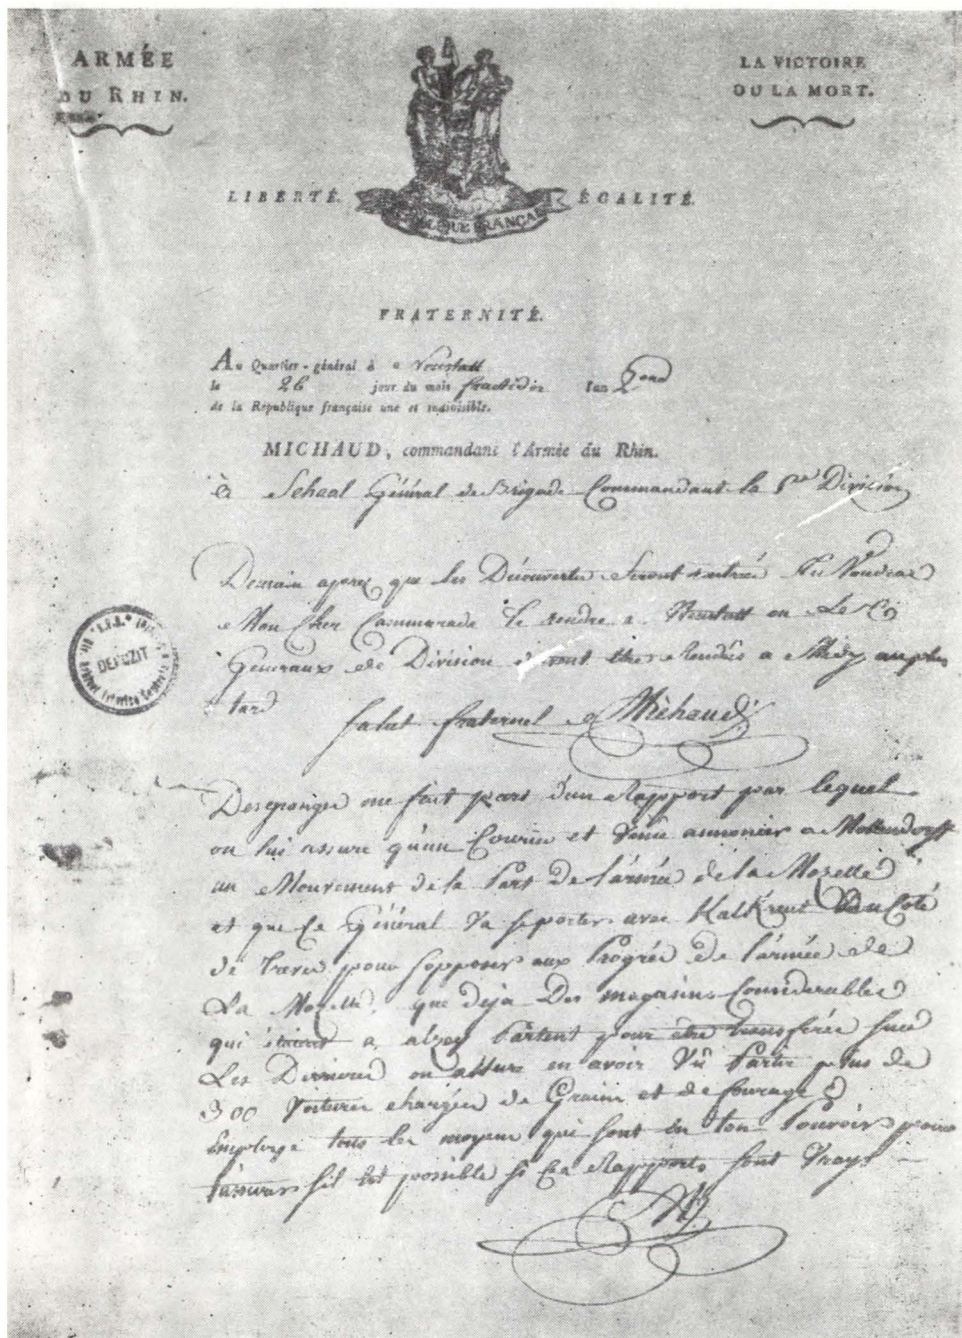 ARMÉE
DU RHIN.
LA VICTOIRE
OU LA MORT.
LIBERTÉ.
ÉGALITÉ.
FRATERNITÉ.
Au Quartier-général à
le 26 jour du mois l'an 2
de la République française une et indivisible.
MICHAUD, commandant l'Armée du Rhin.
à Schaal Général de Brigade Commandant la Division
Demain apres que les Découvertes Seront Tu Voudras
Mon Cher Cammarade te rendre a Neustatt ou Les
Generaux de Division Seront a Midy au plus
tard
Salut fraternel Michaud
DEPOZIT
me fait part d'un Rapport par lequel
on lui assure qu'un Courier est Venu annoncer a Mollendorff
un Mouvement de la Part de l'armée de la Mozelle
et que Ce Général Va se porter avec Kalkreut Du Coté
de Treves pour S'opposer aux Progrès de l'armée de
La Mozelle, que deja Des magasins Considerables
qui étaient a alzey Partent pour être transferés Sur
Les Derrieres on assure en avoir Vû Partir plus de
300 Voitures chargées de Grains et de fourages
Employe tous les moyens qui sont en ton Pouvoir pour
t'assurer s'il est possible si Ces Rapports sont Vrays